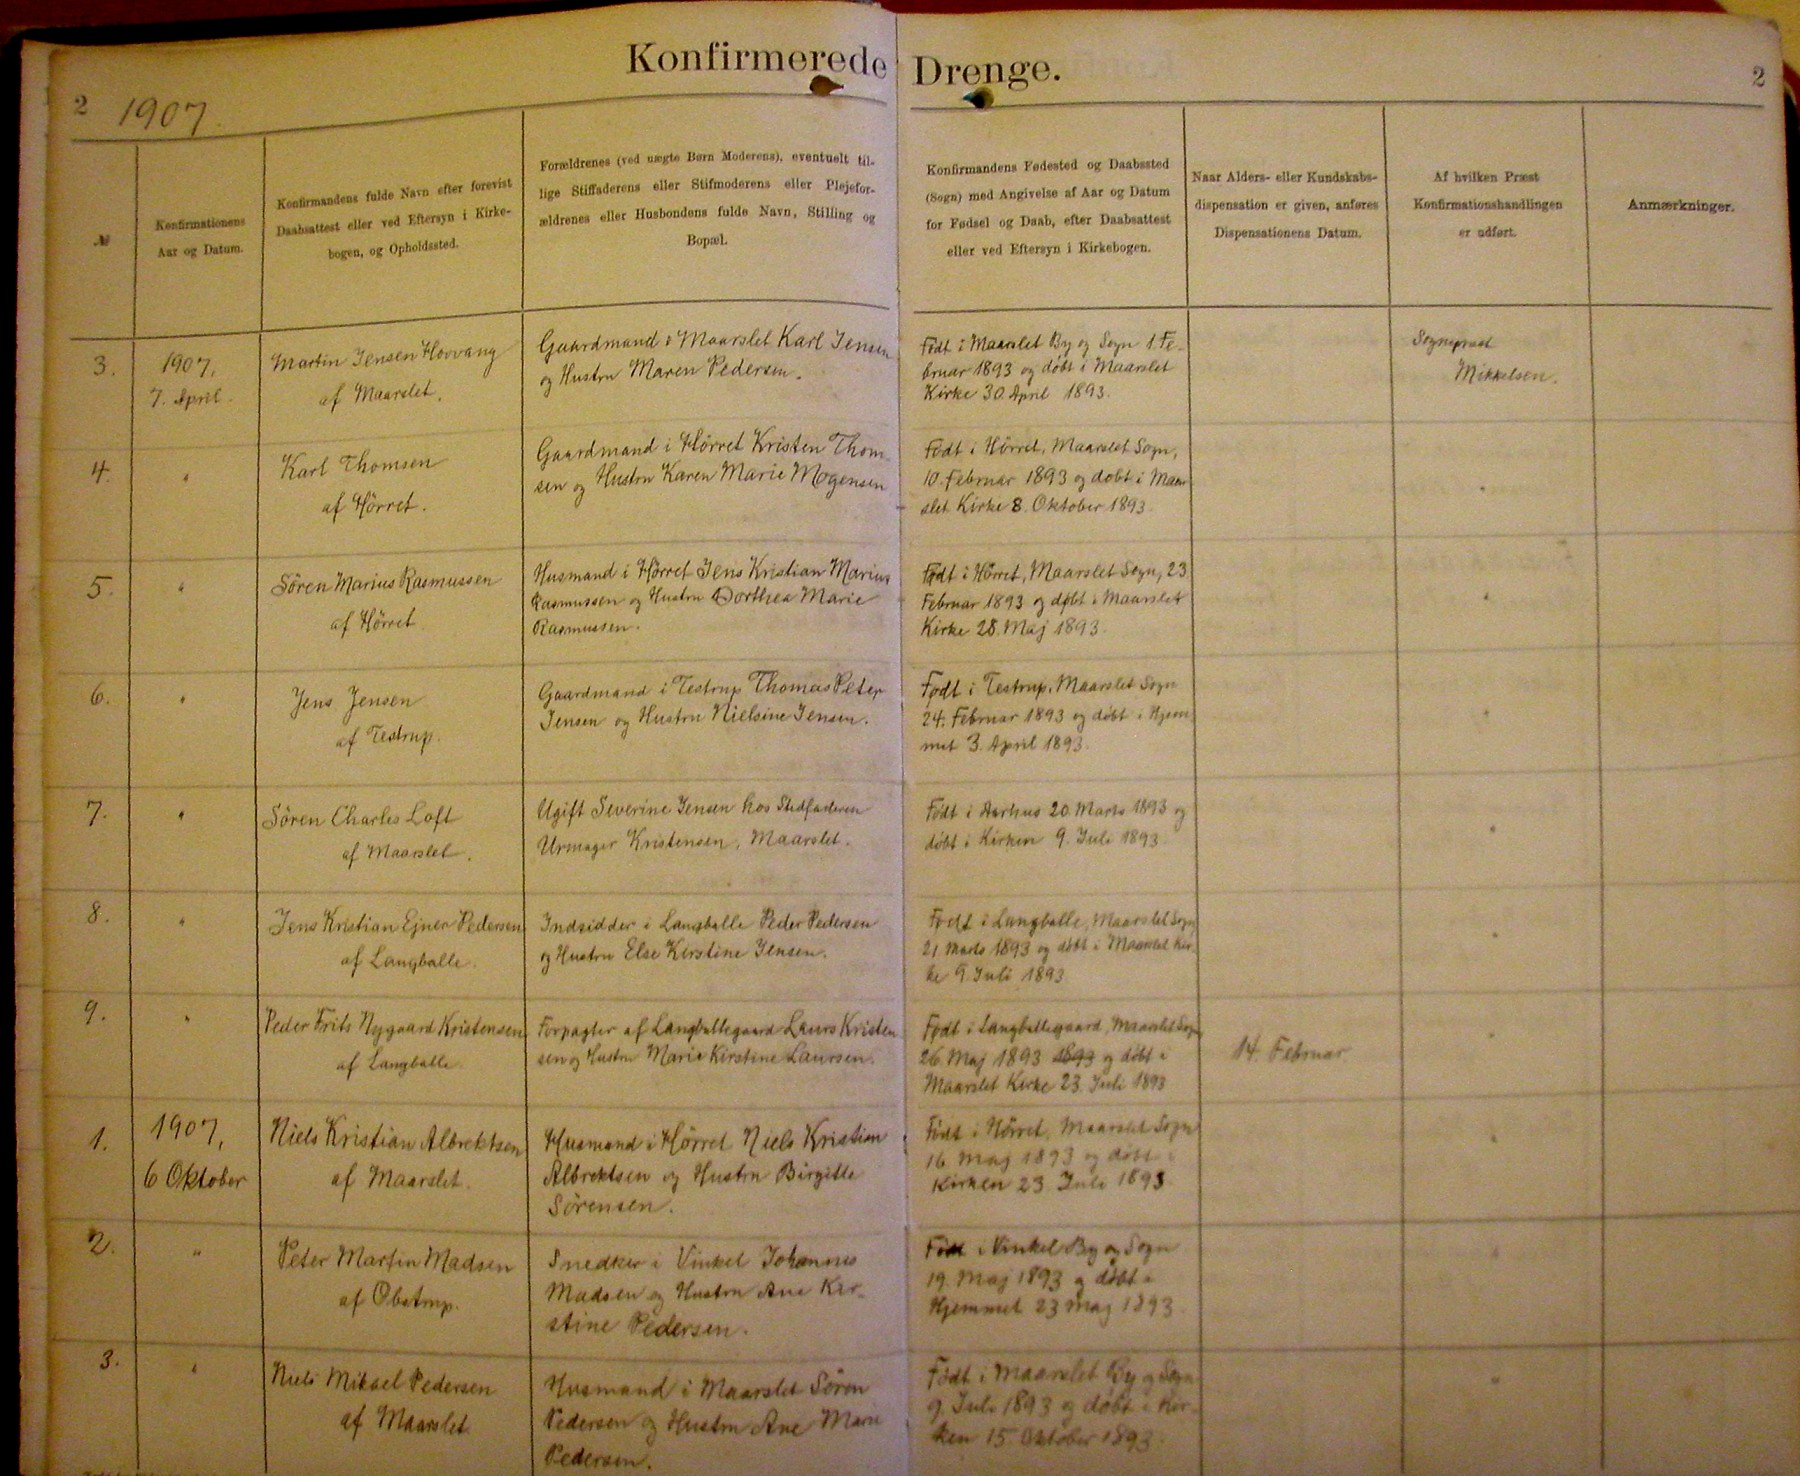 Konfirmerede Drenge.
2 1907.
2
№
Konfirmationens
Aar og Datum.
Konfirmandens fulde Navn efter forevist
Daabsattest eller ved Eftersyn i Kirke-
bogen, og Opholdssted.
Forældrenes (ved uægte Børn Moderens), eventuelt til-
lige Stiffaderens eller Stifmoderens eller Plejefor-
ældrenes eller Husbondens fulde Navn, Stilling og
Bopæl.
Konfirmandens Fødested og Daabssted
(Sogn) med Angivelse af Aar og Datum
for Fødsel og Daab, efter Daabsattest
eller ved Eftersyn i Kirkebogen.
Naar Alders- eller Kundskabs-
dispensation er given, anføres
Dispensationens Datum.
Af hvilken Præst
Konfirmationshandlingen
er udført.
Anmærkninger.
3.
1907,
7. April.
Martin Jensen Hovvang
af Maarslet.
Gaardmand i Maarslet Karl Jensen
og Hustru Maren Pedersen.
Født i Maarslet By og Sogn 1. Fe-
bruar 1893 og døbt i Maarslet
Kirke 30. April 1893.
Sognepræst
Mikkelsen.
4.
"
Karl Thomsen
af Hörret.
Gaardmand i Hörret Kristen Thom-
sen og Hustru Karen Marie Mogensen
Födt i Hörret, Maarslet Sogn,
10. Februar 1893 og døbt i Maar
slet Kirke 8. Oktober 1893.
"
5.
"
Sören Marius Rasmussen
af Hörret.
Husmand i Hörret Jens Kristian Marius
Rasmussen og Hustru Dorthea Marie
Rasmussen.
Født i Hörret, Maarslet Sogn, 23
Februar 1893 og døbt i Maarslet
Kirke 28. Maj 1893.
"
6.
"
Jens Jensen
af Testrup.
Gaardmand i Testrup Thomas Peter
Jensen og Hustru Nielsine Jensen.
Født i Testrup, Maarslet Sogn
24. Februar 1893 og døbt i Hjem-
met 3. April 1893.
"
7.
"
Sören Charles Loft
af Maarslet.
Ugift Severine Jensen hos Stedfaderen
Urmager Kristensen, Maarslet.
Født i Aarhus 20. Marts 1893 og
døbt i Kirken 9. Juli 1893.
"
8.
"
Jens Kristian Ejner Pedersen
af Langballe.
Indsidder i Langballe Peder Pedersen
og Hustru Else Kirstine Jensen.
Födt i Langballe, Maarslet Sogn
21 Marts 1893 og døbt i Maarslet Kir-
ke 9. Juli 1893.
"
9.
"
Peder Frits Nygaard Kristensen
af Langballe.
Forpagter af Langballegaard Laurs Kristen
sen og Hustru Marie Kirstine Laursen.
Født i Langballegaard, Maarslet Sogn
26. Maj 1893 1893 og døbt i
Maarslet Kirke 23. Juli 1893
14. Februar
"
1.
1907,
6 Oktober
Niels Kristian Albrektsen
af Maarslet.
Husmand i Hörret Niels Kristian
Albrektsen og Hustru Birgitte
Sörensen.
Födt i Hörret, Maarslet Sogn
16 Maj 1893 og døbt i
Kirken 23 Juli 1893.
"
2.
"
Peter Martin Madsen
af Obstrup.
Snedker i Vinkel Johannes
Madsen og Hustru Ane Kir-
stine Pedersen.
Födt i Vinkel By og Sogn
19. Maj 1893 og døbt i
Hjemmet 23 Maj 1893.
"
3.
"
Niels Mikael Pedersen
af Maarslet.
Husmand i Maarslet Sören
Pedersen og Hustru Ane Marie
Pedersen.
Födt i Maarslet By og Sogn
9. Juli 1893 og døbt i Kir-
ken 15. Oktober 1893.
"